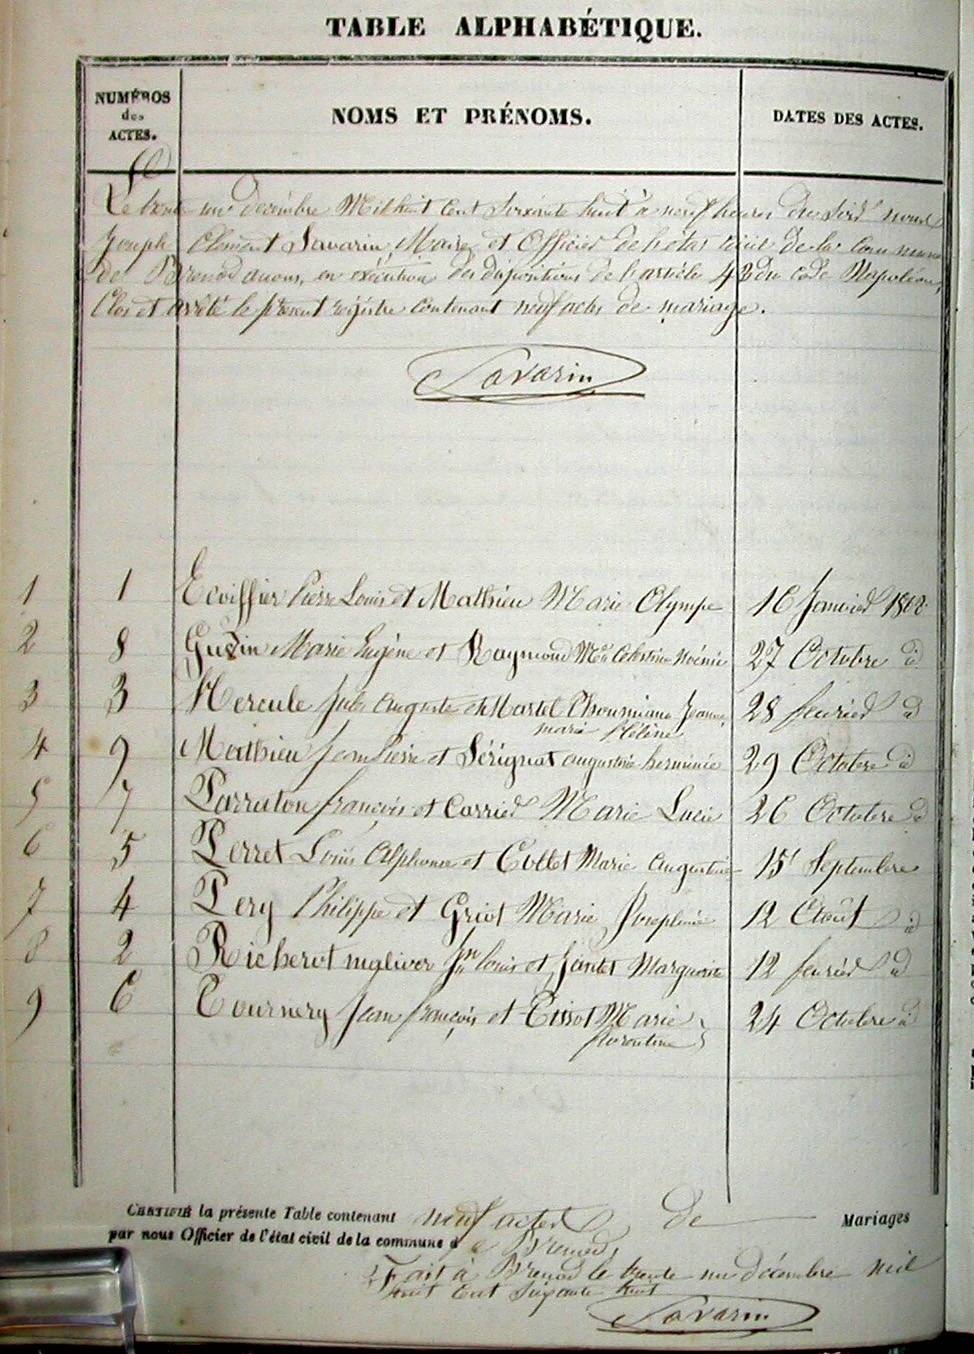 TABLE ALPHABÉTIQUE.
NUMÉROS des ACTES.
NOMS ET PRÉNOMS.
DATES DES ACTES.
Le trente un décembre Mil huit cent soixante huit à neuf heures du soir nous
Joseph Clément Savarin Maire et Officier de l'état civil de la commune
de Brenod avons, en exécution des dispositions de l'article 43 du code Napoléon,
Clos et arrêté le présent régistre contenant neuf actes de mariage.
Savarin
1 1 Ecoiffier Pierre Louis et Mathieu Marie Olympe 16 Janvier 1868
2 8 Guzin Marie Eugène et Raymond Mie Célestine Noémie 27 Octobre id
3 3 Hercule Jules Auguste et Martel Jeanne 28 février id
marie Hélène
4 9 Mathieu Jean Pierre et Sérignat augustine herminie 29 Octobre id
5 7 Parruton françois et Carrier Marie Lucie 26 Octobre id
6 5 Perret Louis Alphonse et Collet Marie Augustine 15 Septembre
7 4 Pery Philippe et Griot Marie Josephine 12 Août id
8 2 Richerot Jn louis et Jantet Marguerite 12 février id
9 6 Tournery Jean françois et Tissot Marie 24 Octobre id
florentine
CERTIFIÉ la présente Table contenant neuf actes de Mariages
par nous Officier de l'état civil de la commune d e Brenod,
Fait à Brenod le trente un décembre mil
huit cent soixante huit
Savarin